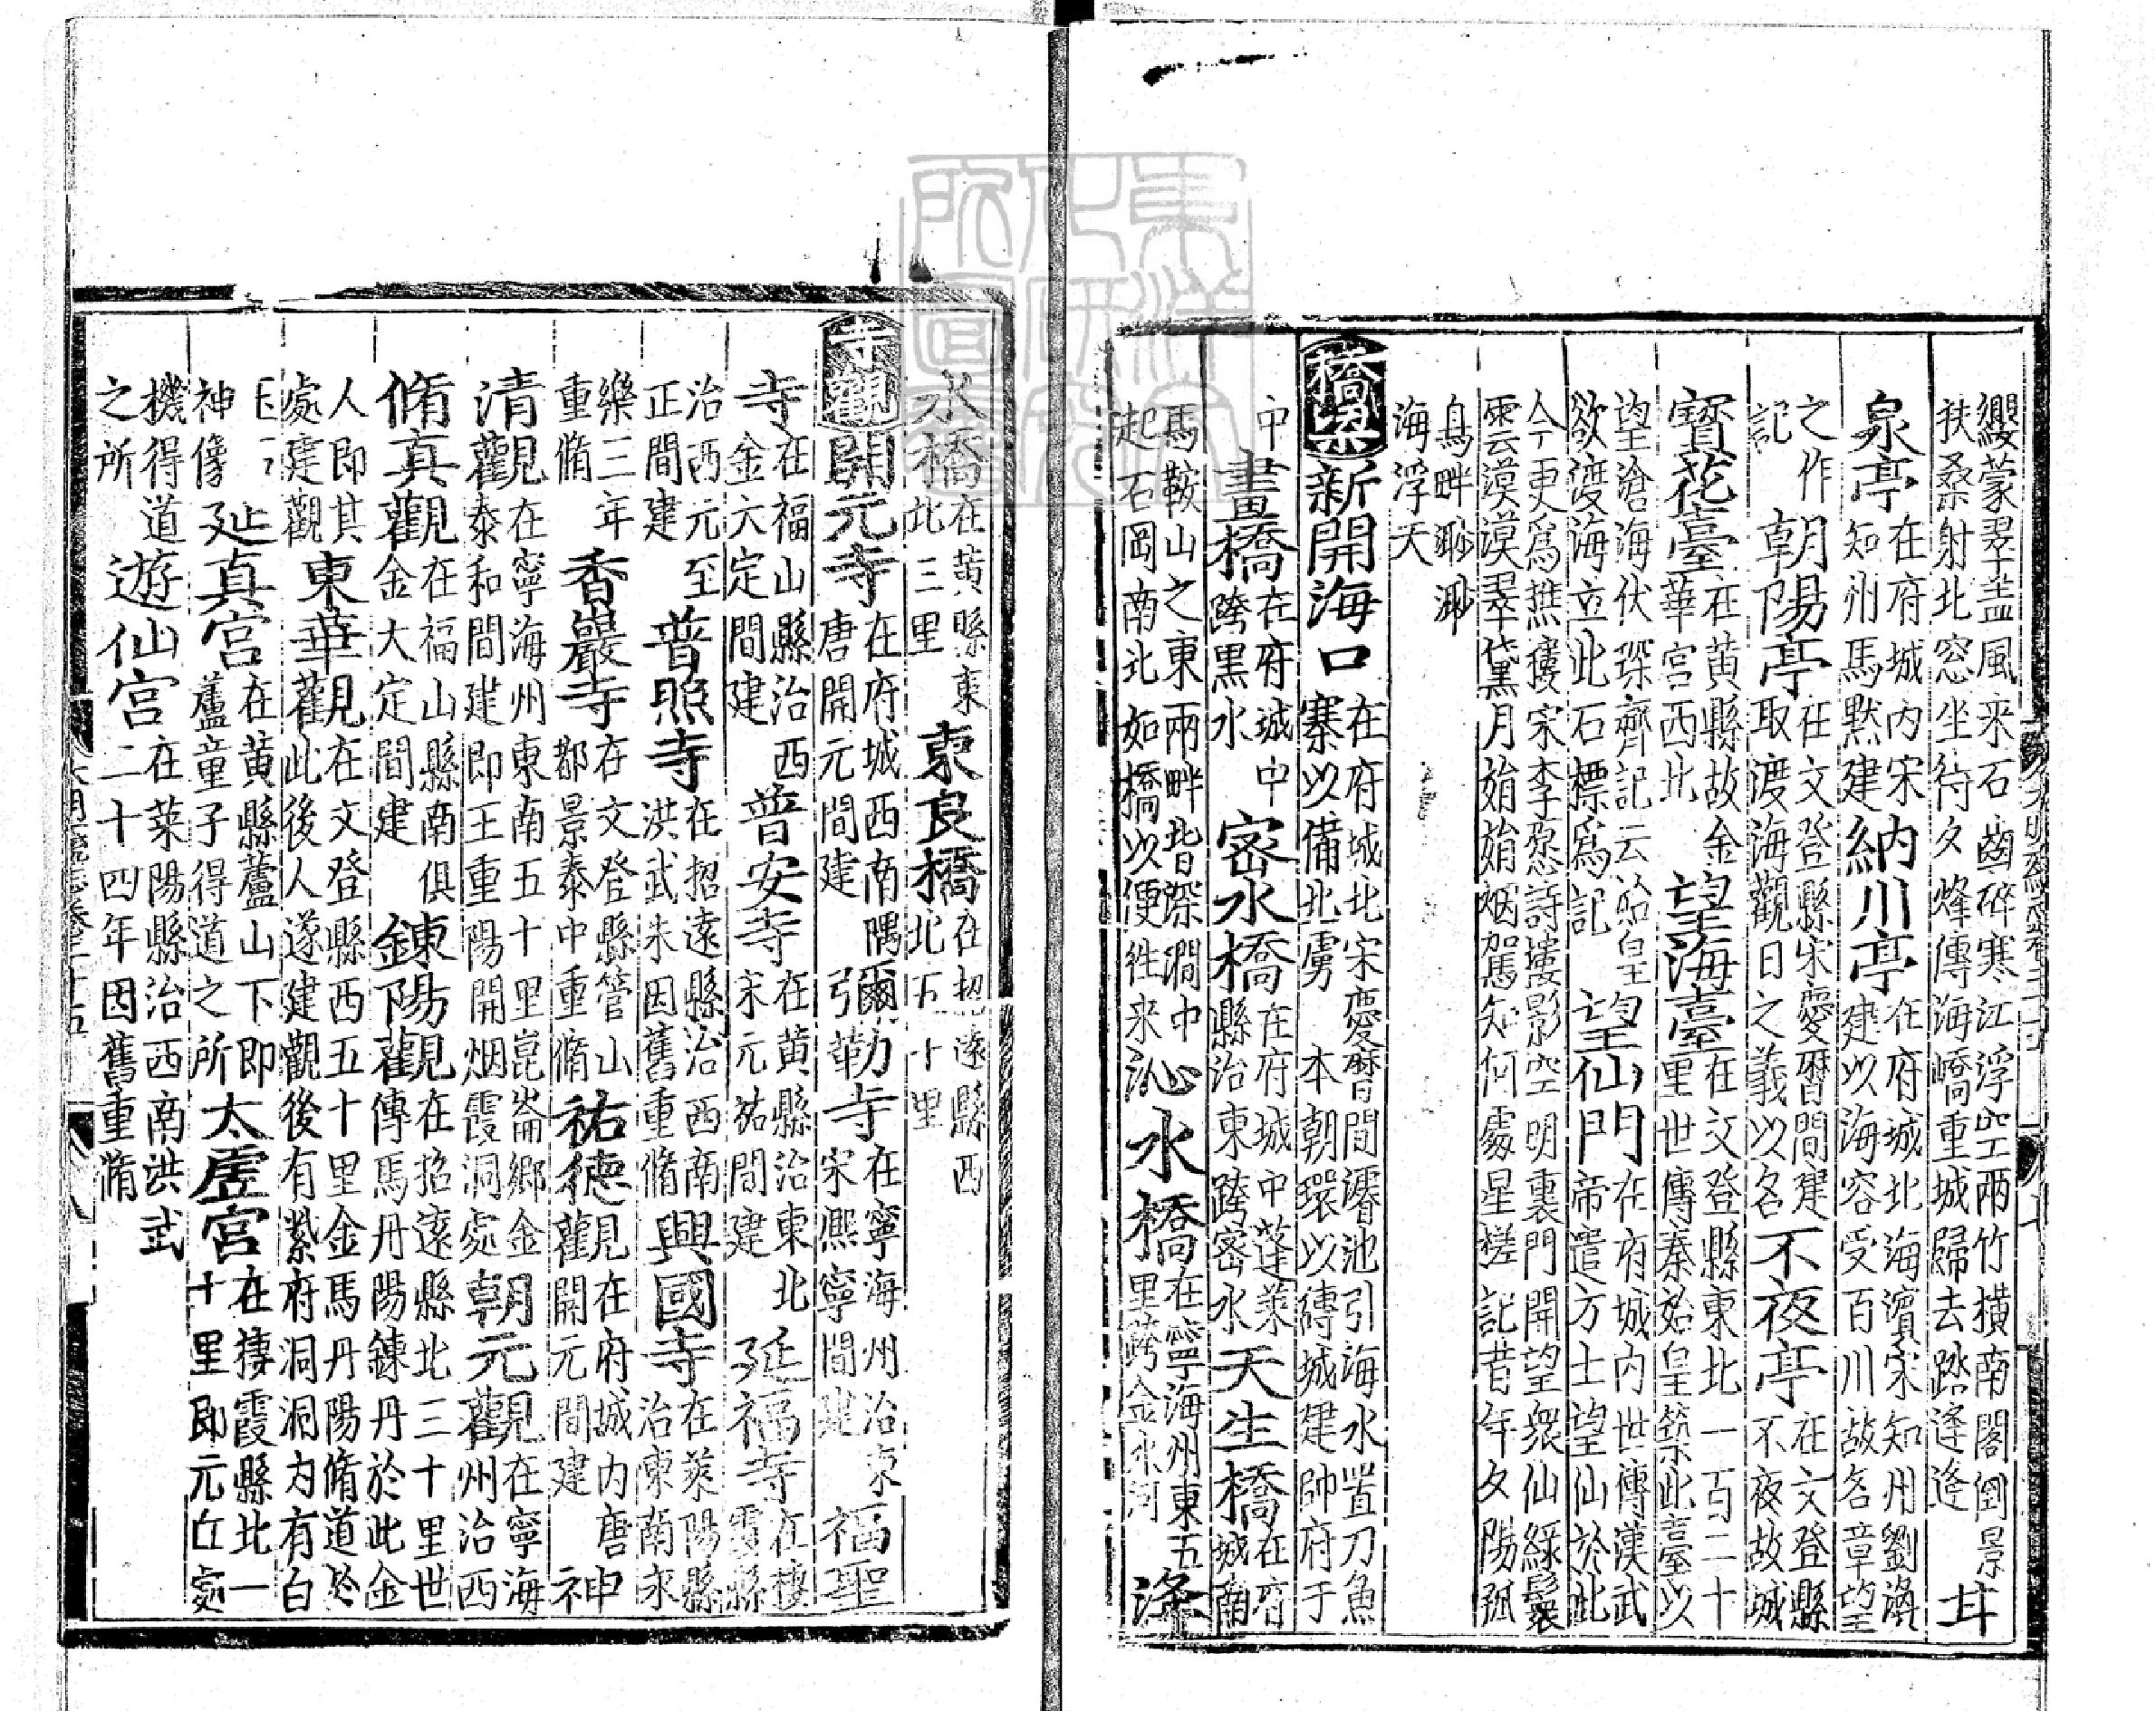 纓蒙翠盖風来石齒碎寒江浮空兩竹橫南閣倒景
扶桑射北窓坐待夕烽傳海嶠重城歸去踏逢逄
甘
泉亭
在府城内宋
知州馬默建
納川亭
在府城北海濱宋知州劉涣
建以海容受百川故名章望
之作
記
朝陽亭
在文登縣宋慶曆間建
取渡海觀日之義以名
不夜亭
在文登縣
不夜故城
寳花臺
在黄縣故金
華宫西北
望海臺
在文登縣東北一百二十
里世傳秦始皇築此臺以
望滄海伏琛齊記云始皇
欲渡海立此石標爲記
望仙門
在府城内世傳漢武
帝遣方士望仙於此
今更爲譙樓宋李愿詩樓影空明裏門開望衆仙緑鬟
雲漠漠翠黛月娟娟烟駕知何處星槎記昔年夕陽孤
鳥畔渺渺
海浮天
橋梁
新開海口
在府城北宋慶曆間濬池引海水置刀魚
寨以備北虜 本朝環以磚城建帥府于
中
畫橋
在府城中
跨黒水
密水橋
在府城中蓬莱
縣治東跨密水
天生橋
在府
城南
馬鞍山之東兩畔皆深澗中
起石岡南北如橋以便往来
沁水橋
在寧海州東五
里跨金水河
洚
水橋
在黄縣東
北三里
東良橋
在招遠縣西
北五十里
寺觀
開元寺
在府城西南隅
唐開元間建
彌勒寺
在寧海州治東
宋熈寧間建
福聖
寺
在福山縣治西
金大定間建
普安寺
在黄縣治東北
宋元祐間建
延福寺
在棲
霞縣
治西元至
正間建
普照寺
在招遠縣治西南
洪武朱因舊重脩
興國寺
在莱陽縣
治東南永
樂三年
重脩
香巖寺
在文登縣管山
都景泰中重脩
祐德觀
在府城内唐
開元間建
神
清觀
在寧海州東南五十里崑崙鄉金
泰和間建即王重陽開烟霞洞處
朝元觀
在寧海
州治西
脩真觀
在福山縣南俱
金大定間建
錬陽觀
在招遠縣北三十里世
傳馬丹陽錬丹於此金
人即其
處建觀
東華觀
在文登縣西五十里金馬丹陽脩道於
此後人遂建觀後有紫府洞洞内有白
玉
神像
延真宫
在黄縣蘆山下即
蘆童子得道之所
太虚宫
在棲霞縣北一
十里即元丘處
機得道
之所
遊仙宫
在莱陽縣治西南洪武
二十四年因舊重脩